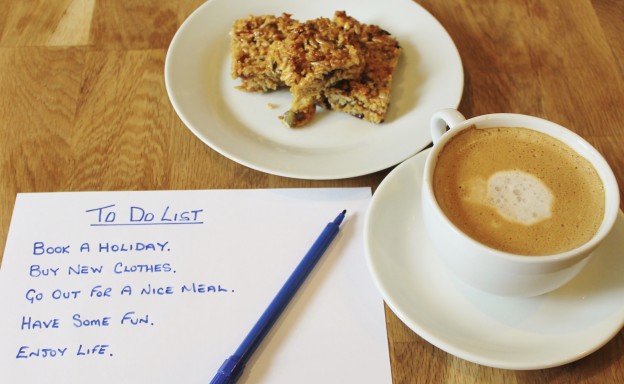 To Do List
Book a Holiday.
Buy New Clothes.
Go Out For a Nice Meal.
Have Some Fun.
Enjoy Life.